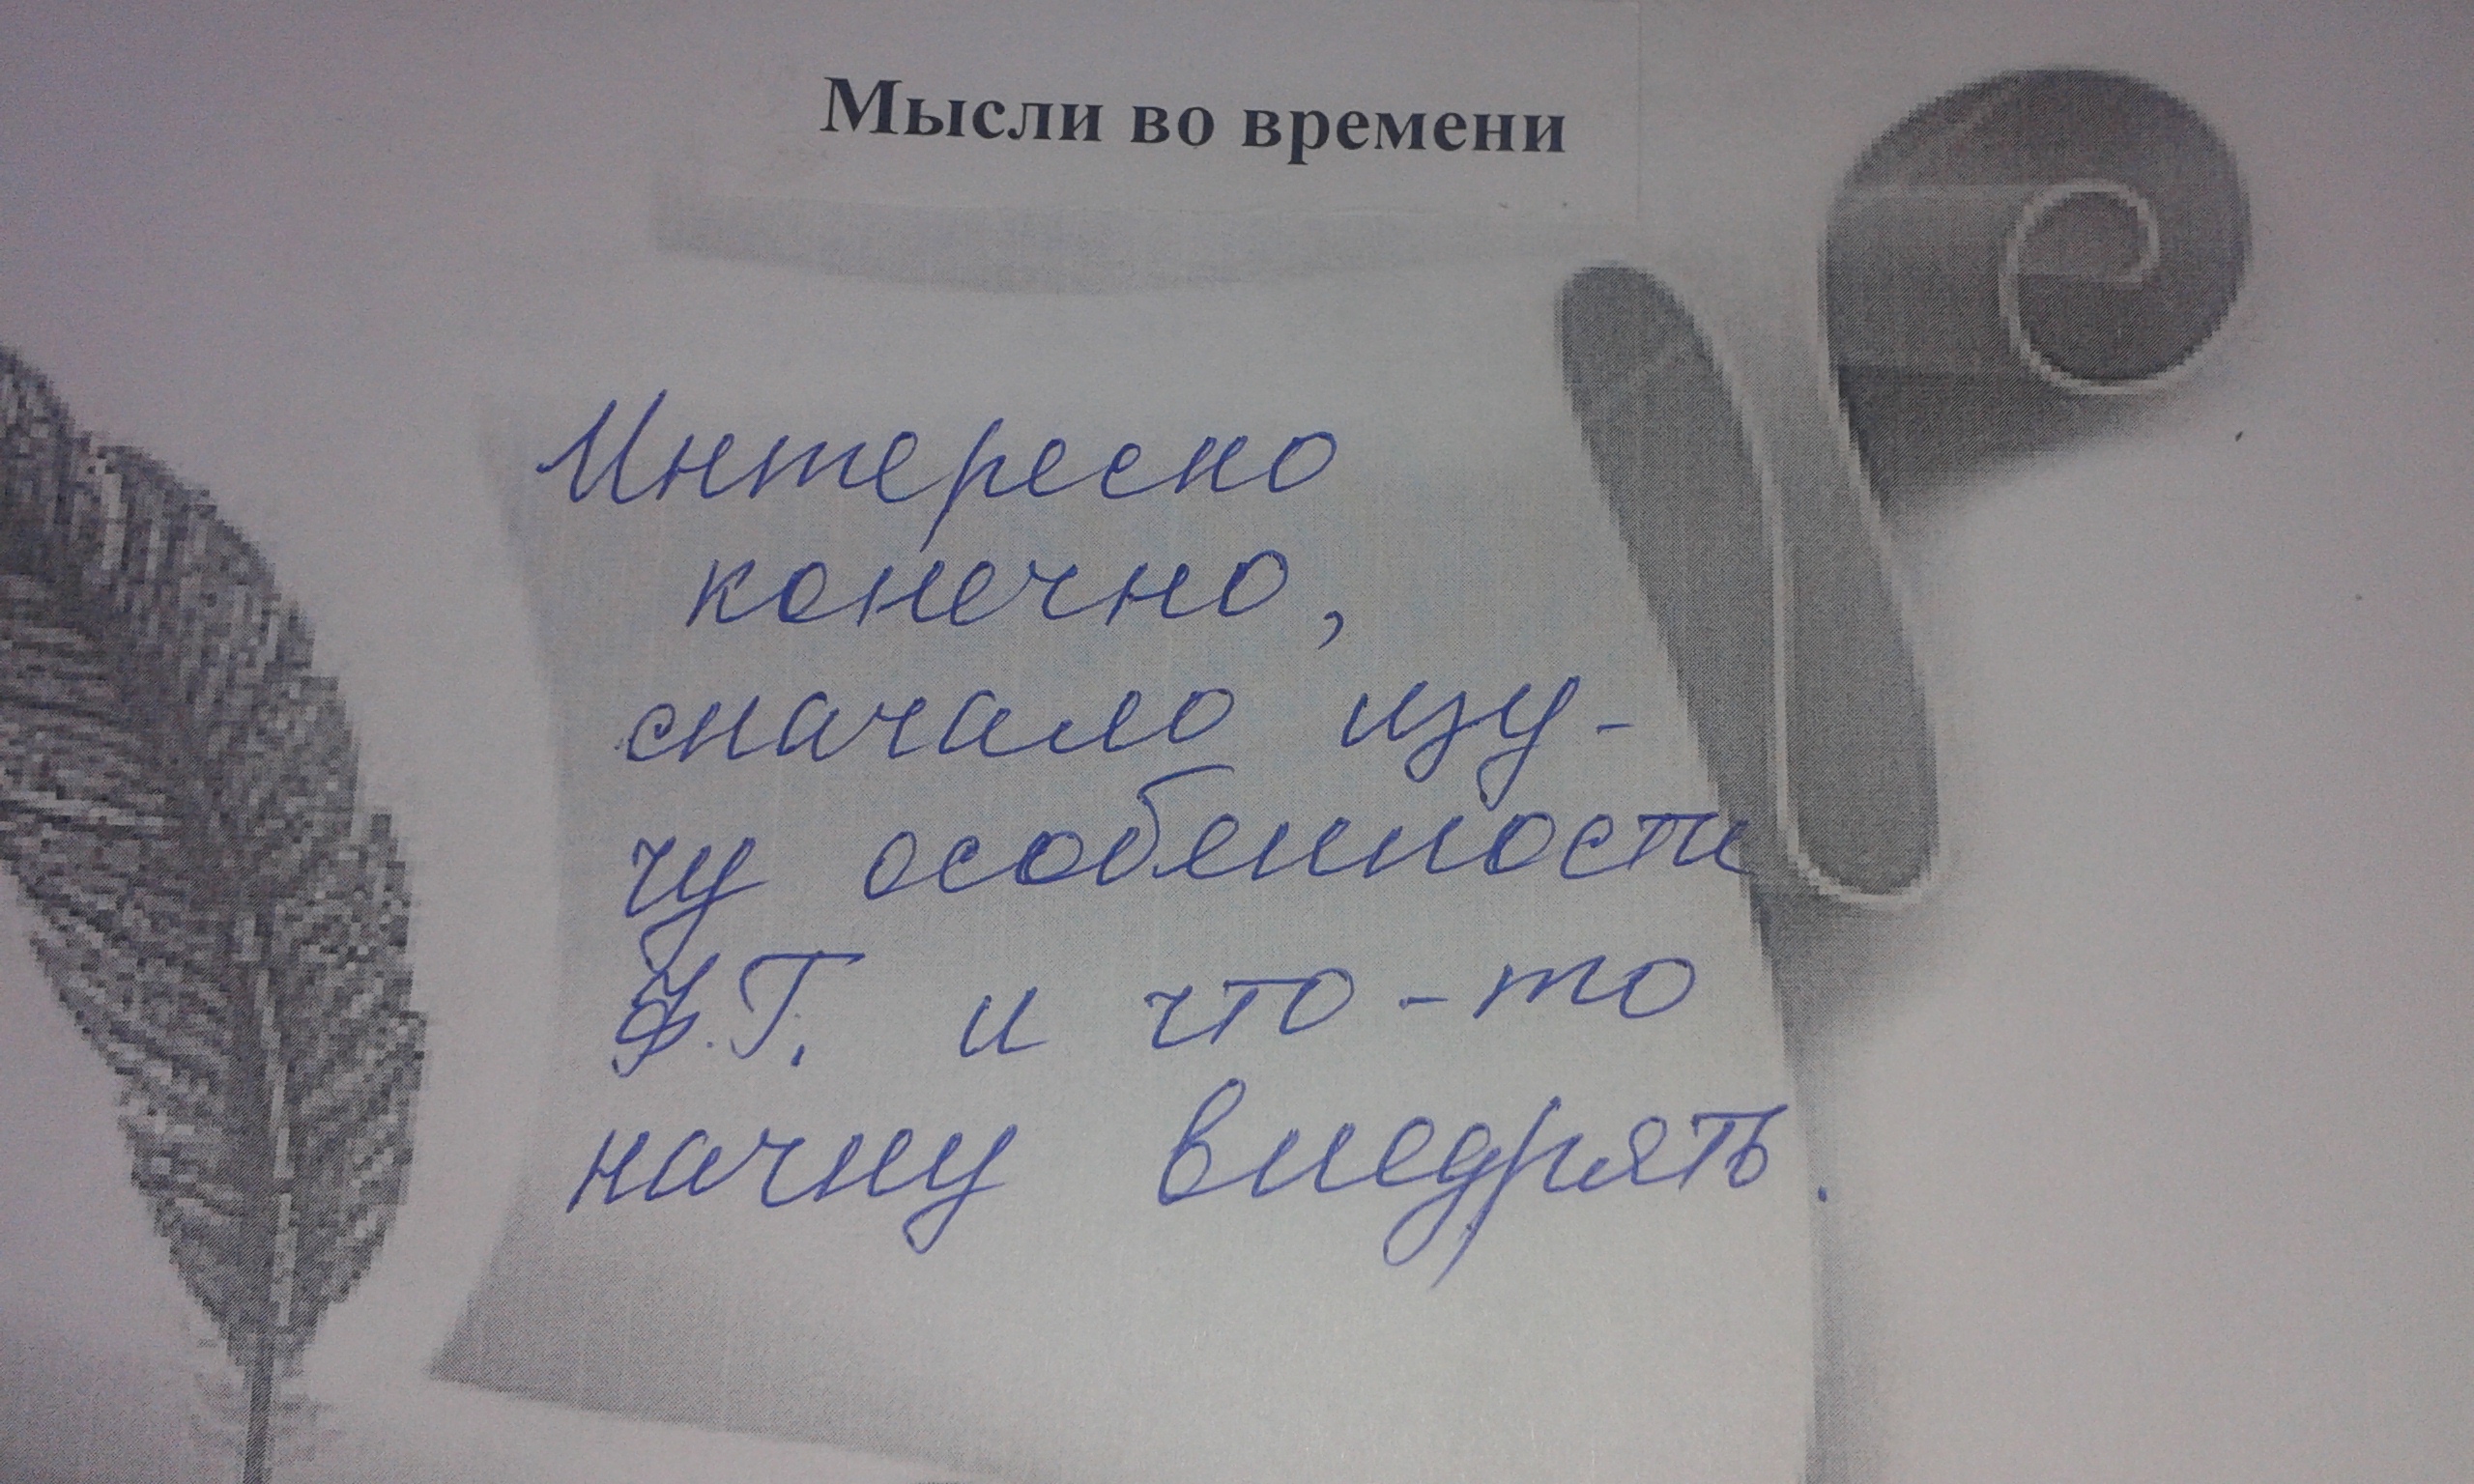 Мысли во времени
Интересно
конечно,
сначало изу-
чу особенности
Ф.Г. и что-то
начну внедрять.